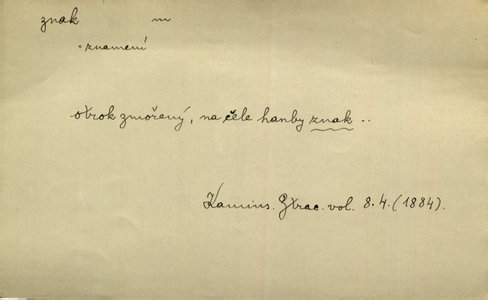 znak m
= znamení
otrok zmořený, na čele hanby znak ..
Kamins. Ztrac. vol. 8.4. (1884).